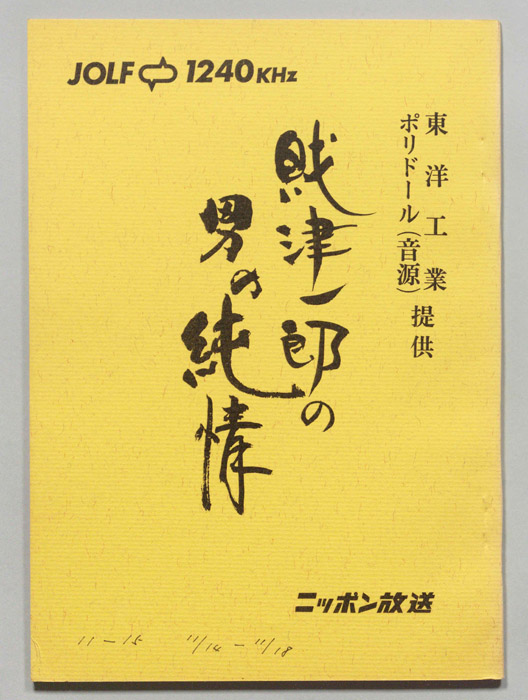 JOLF 1240KHz
東洋工業
ポリドール(音源)提供
財津一郎の
男の純情
ニッポン放送
11-15 11/14-11/18